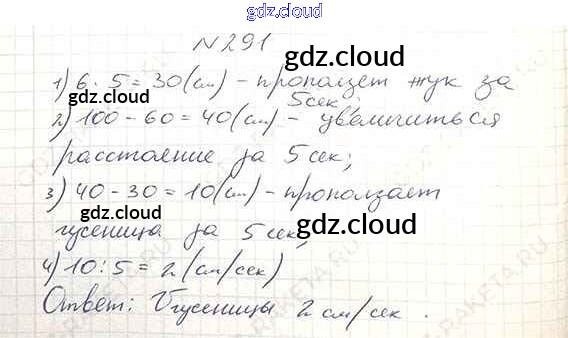 gdz.cloud
N291
gdz.cloud
1) 6 · 5 = 30 (см) - проползет жук за
5сек;
gdz.cloud
2) 100 - 60 = 40 (см) - увеличиться
расстояние за 5 сек;
3) 40 - 30 = 10 (см) - проползает
gdz.cloud
гусеница за 5 сек;
gdz.cloud
4) 10 : 5 = 2 (см/сек)
Ответ: V гусеницы 2 см/сек.